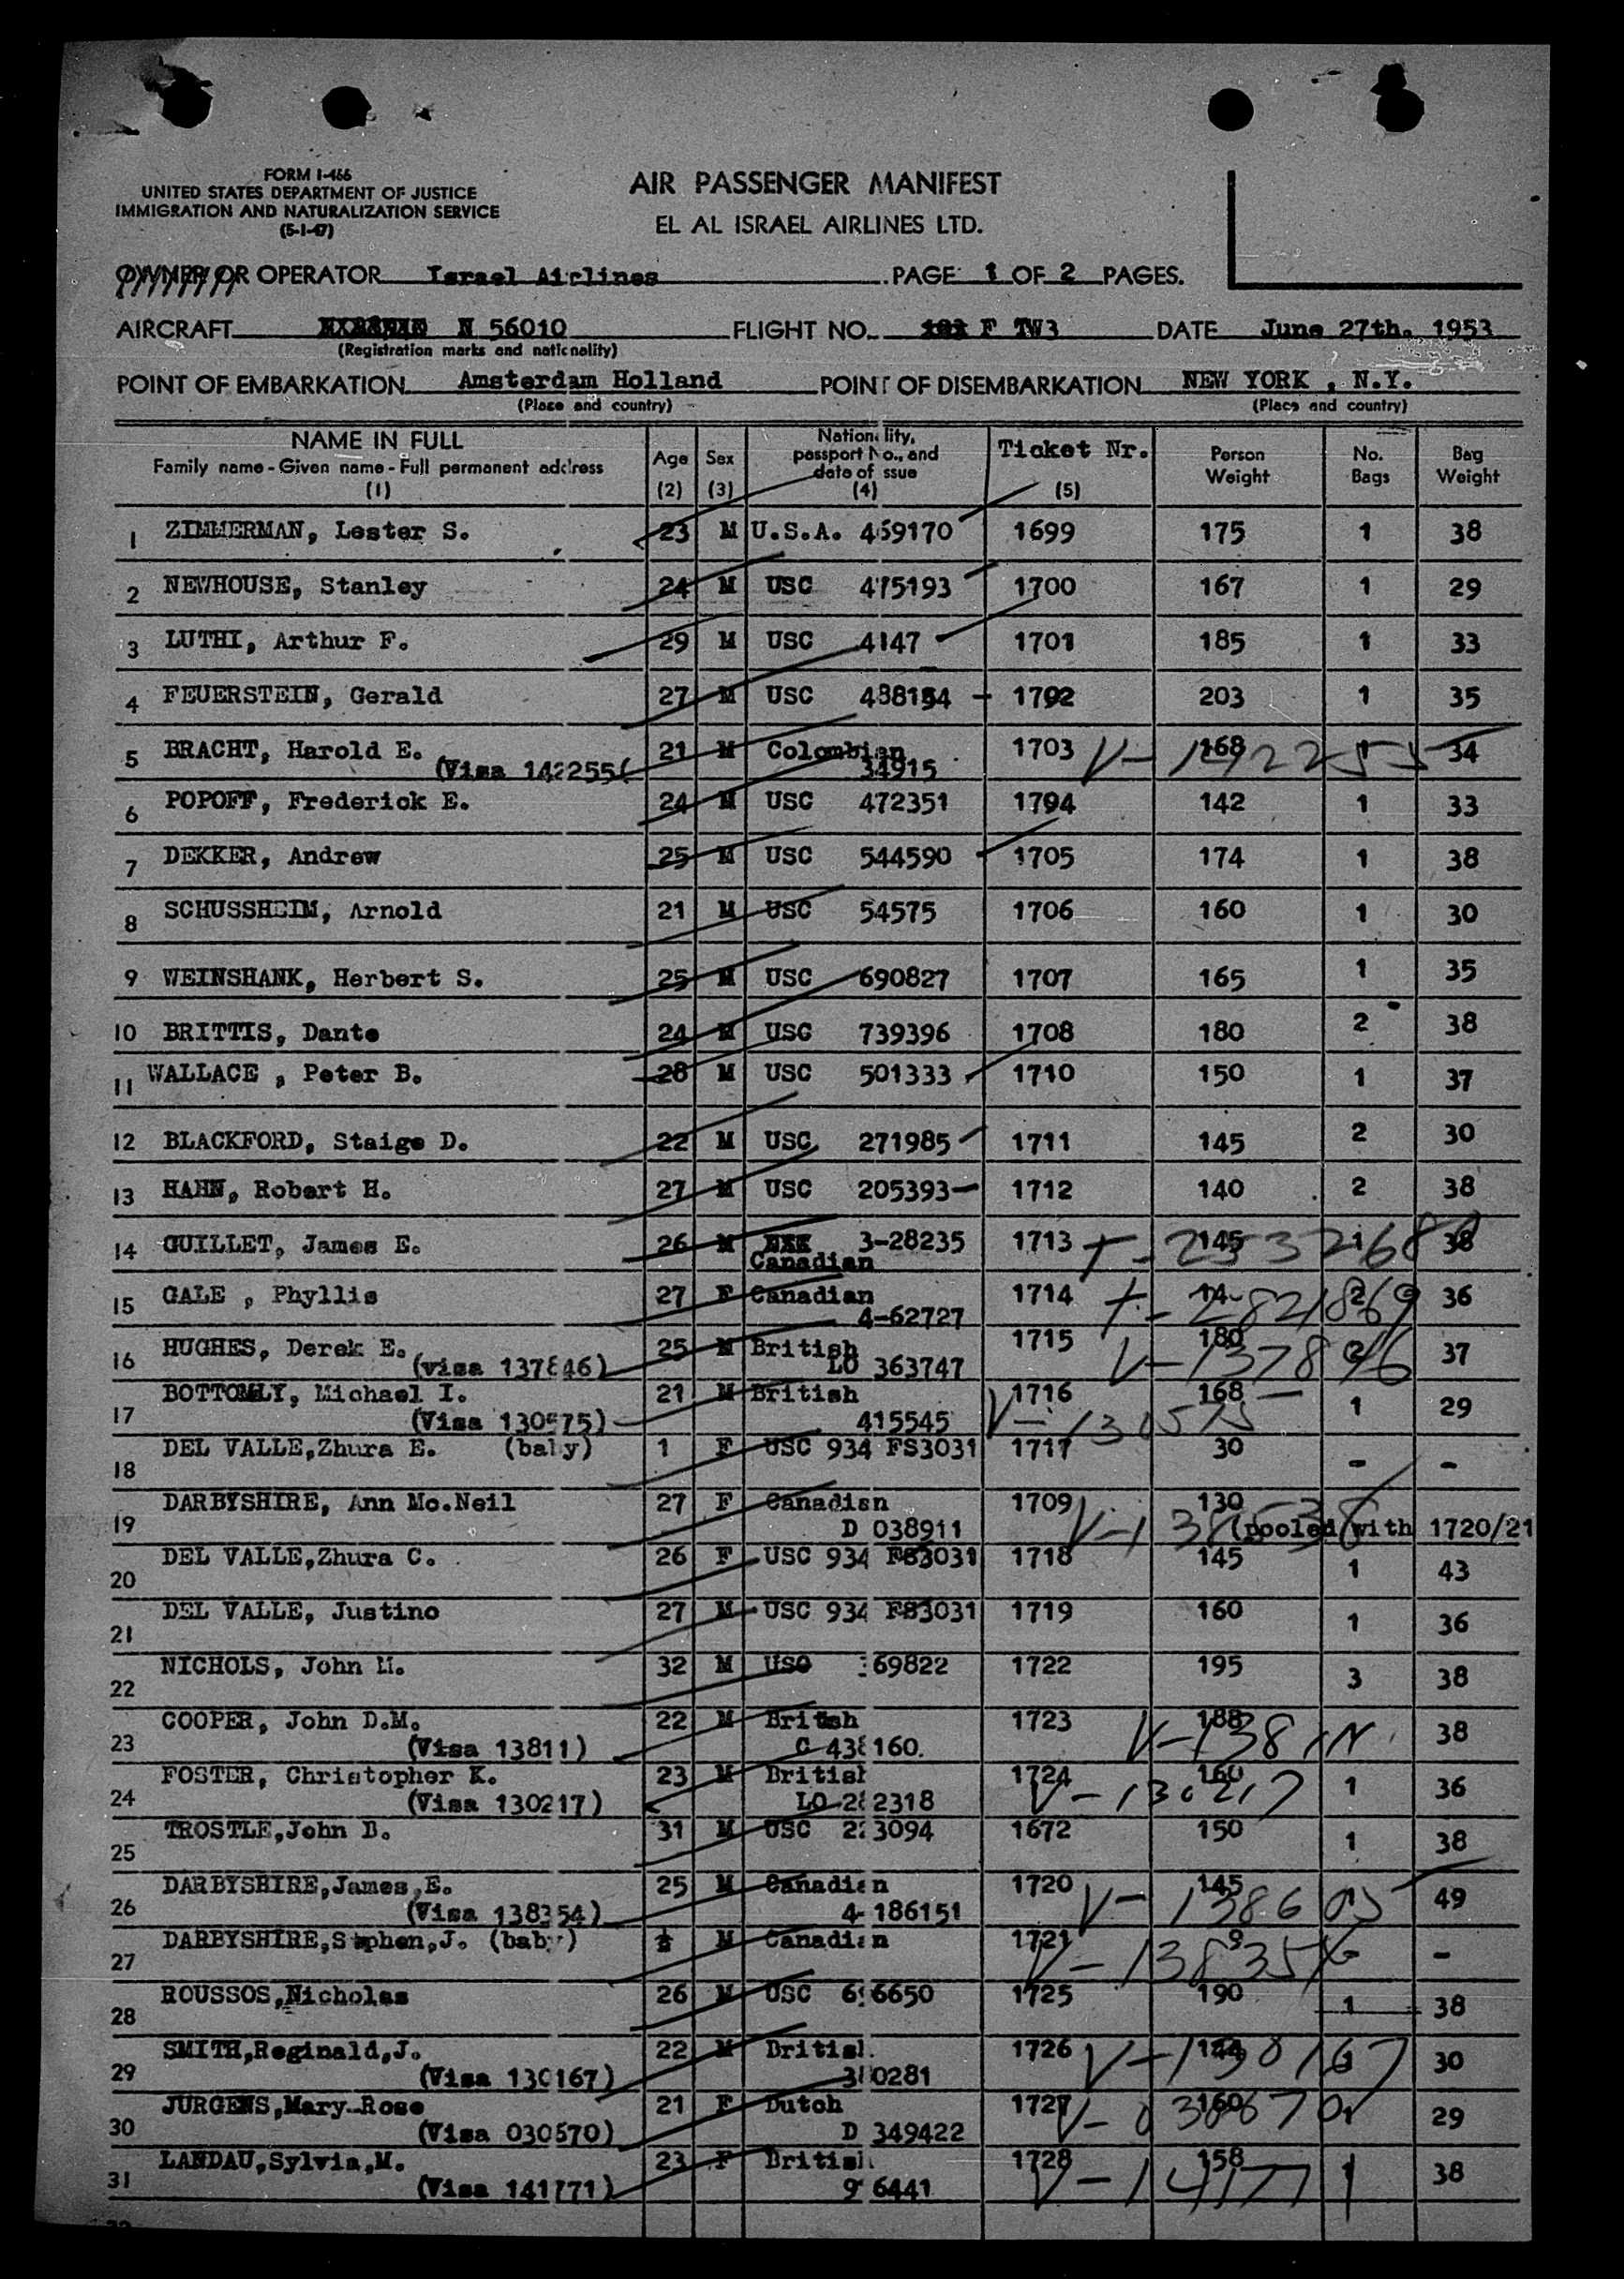 FORM I-466
UNITED STATES DEPARTMENT OF JUSTICE
IMMIGRATION AND NATURALIZATION SERVICE
(5-1-47)
AIR PASSENGER MANIFEST
EL AL ISRAEL AIRLINES LTD.
OWNER OR OPERATOR Israel Airlines PAGE 1 OF 2 PAGES.
AIRCRAFT N 56010 FLIGHT NO. F TW3 DATE June 27th. 1953
(Registration marks and nationality)
POINT OF EMBARKATION Amsterdam Holland POINT OF DISEMBARKATION NEW YORK , N.Y.
(Place and country) (Place and country)
NAME IN FULL
Family name - Given name - Full permanent address
(1)
Age
(2)
Sex
(3)
Nationality,
passport No., and
date of issue
(4)
Ticket Nr.
(5)
Person
Weight
No.
Bags
Bag
Weight
1 ZIMMERMAN, Lester S. 23 M U.S.A. 469170 1699 175 1 38
2 NEWHOUSE, Stanley 24 M USC 475193 1700 167 1 29
3 LUTHI, Arthur F. 29 M USC 4147 1701 185 1 33
4 FEUERSTEIN, Gerald 27 M USC 1792 203 1 35
5 BRACHT, Harold E. 21 M Colombian 1703 168 1 34
(Visa 142255( 34915 V-142255
6 POPOFF, Frederick E. 24 M USC 472351 1794 142 1 33
7 DEKKER, Andrew 25 M USC 544590 1705 174 1 38
8 SCHUSSHEIM, Arnold 21 M USC 54575 1706 160 1 30
9 WEINSHANK, Herbert S. 25 M USC 690827 1707 165 1 35
10 BRITTIS, Dante 24 M USC 739396 1708 180 2 38
11 WALLACE , Peter B. 28 M USC 501333 1710 150 1 37
12 BLACKFORD, Staige D. 22 M USC 271985 1711 145 2 30
13 HAHN, Robert H. 27 M USC 205393 1712 140 2 38
14 GUILLET, James E. 26 M 3-28235 1713 145 1 38
Canadian
15 GALE , Phyllis 27 F Canadian 1714 2 36
4-62727
16 HUGHES, Derek E. 25 M British 1715 180 2 37
(visa 137846) LO 363747 V-137846
17 BOTTOMLY, Michael I. 21 M British 1716 168 1 29
(Visa 130575) 415545 V-130575
18 DEL VALLE,Zhura E. (baby) 1 F USC 934 FS3031 1717 30 - -
19 DARBYSHIRE, Ann Mc.Neil 27 F Canadian 1709 130
D 038911 (pooled with 1720/21
20 DEL VALLE,Zhura C. 26 F USC 934 FS3031 1718 145 1 43
21 DEL VALLE, Justino 27 M USC 934 FS3031 1719 160 1 36
22 NICHOLS, John M. 32 M USC 69822 1722 195 3 38
23 COOPER, John D.M. 22 M British 1723 188 38
(Visa 13811) C 438160.
24 FOSTER, Christopher K. 23 M British 1724 160 1 36
(Visa 130217) LO 282318 V-130217
25 TROSTLE,John D. 31 M USC 223094 1672 150 1 38
26 DARBYSHIRE,James,E. 25 M Canadian 1720 145 49
(Visa 138354) 4-186151
27 DARBYSHIRE,Stephen,J. (baby) M Canadian 1721 9 - -
V-138354
28 ROUSSOS,Nicholas 26 M USC 1725 190 1 38
29 SMITH,Reginald,J. 22 M British 1726 144 30
(Visa 130167) V-130167
30 JURGENS,Mary-Rose 21 F Dutch 1727 160 29
(Visa 030670) D 349422
31 LANDAU,Sylvia,M. 23 F British 1728 158 1 38
(Visa 141771) V-141771